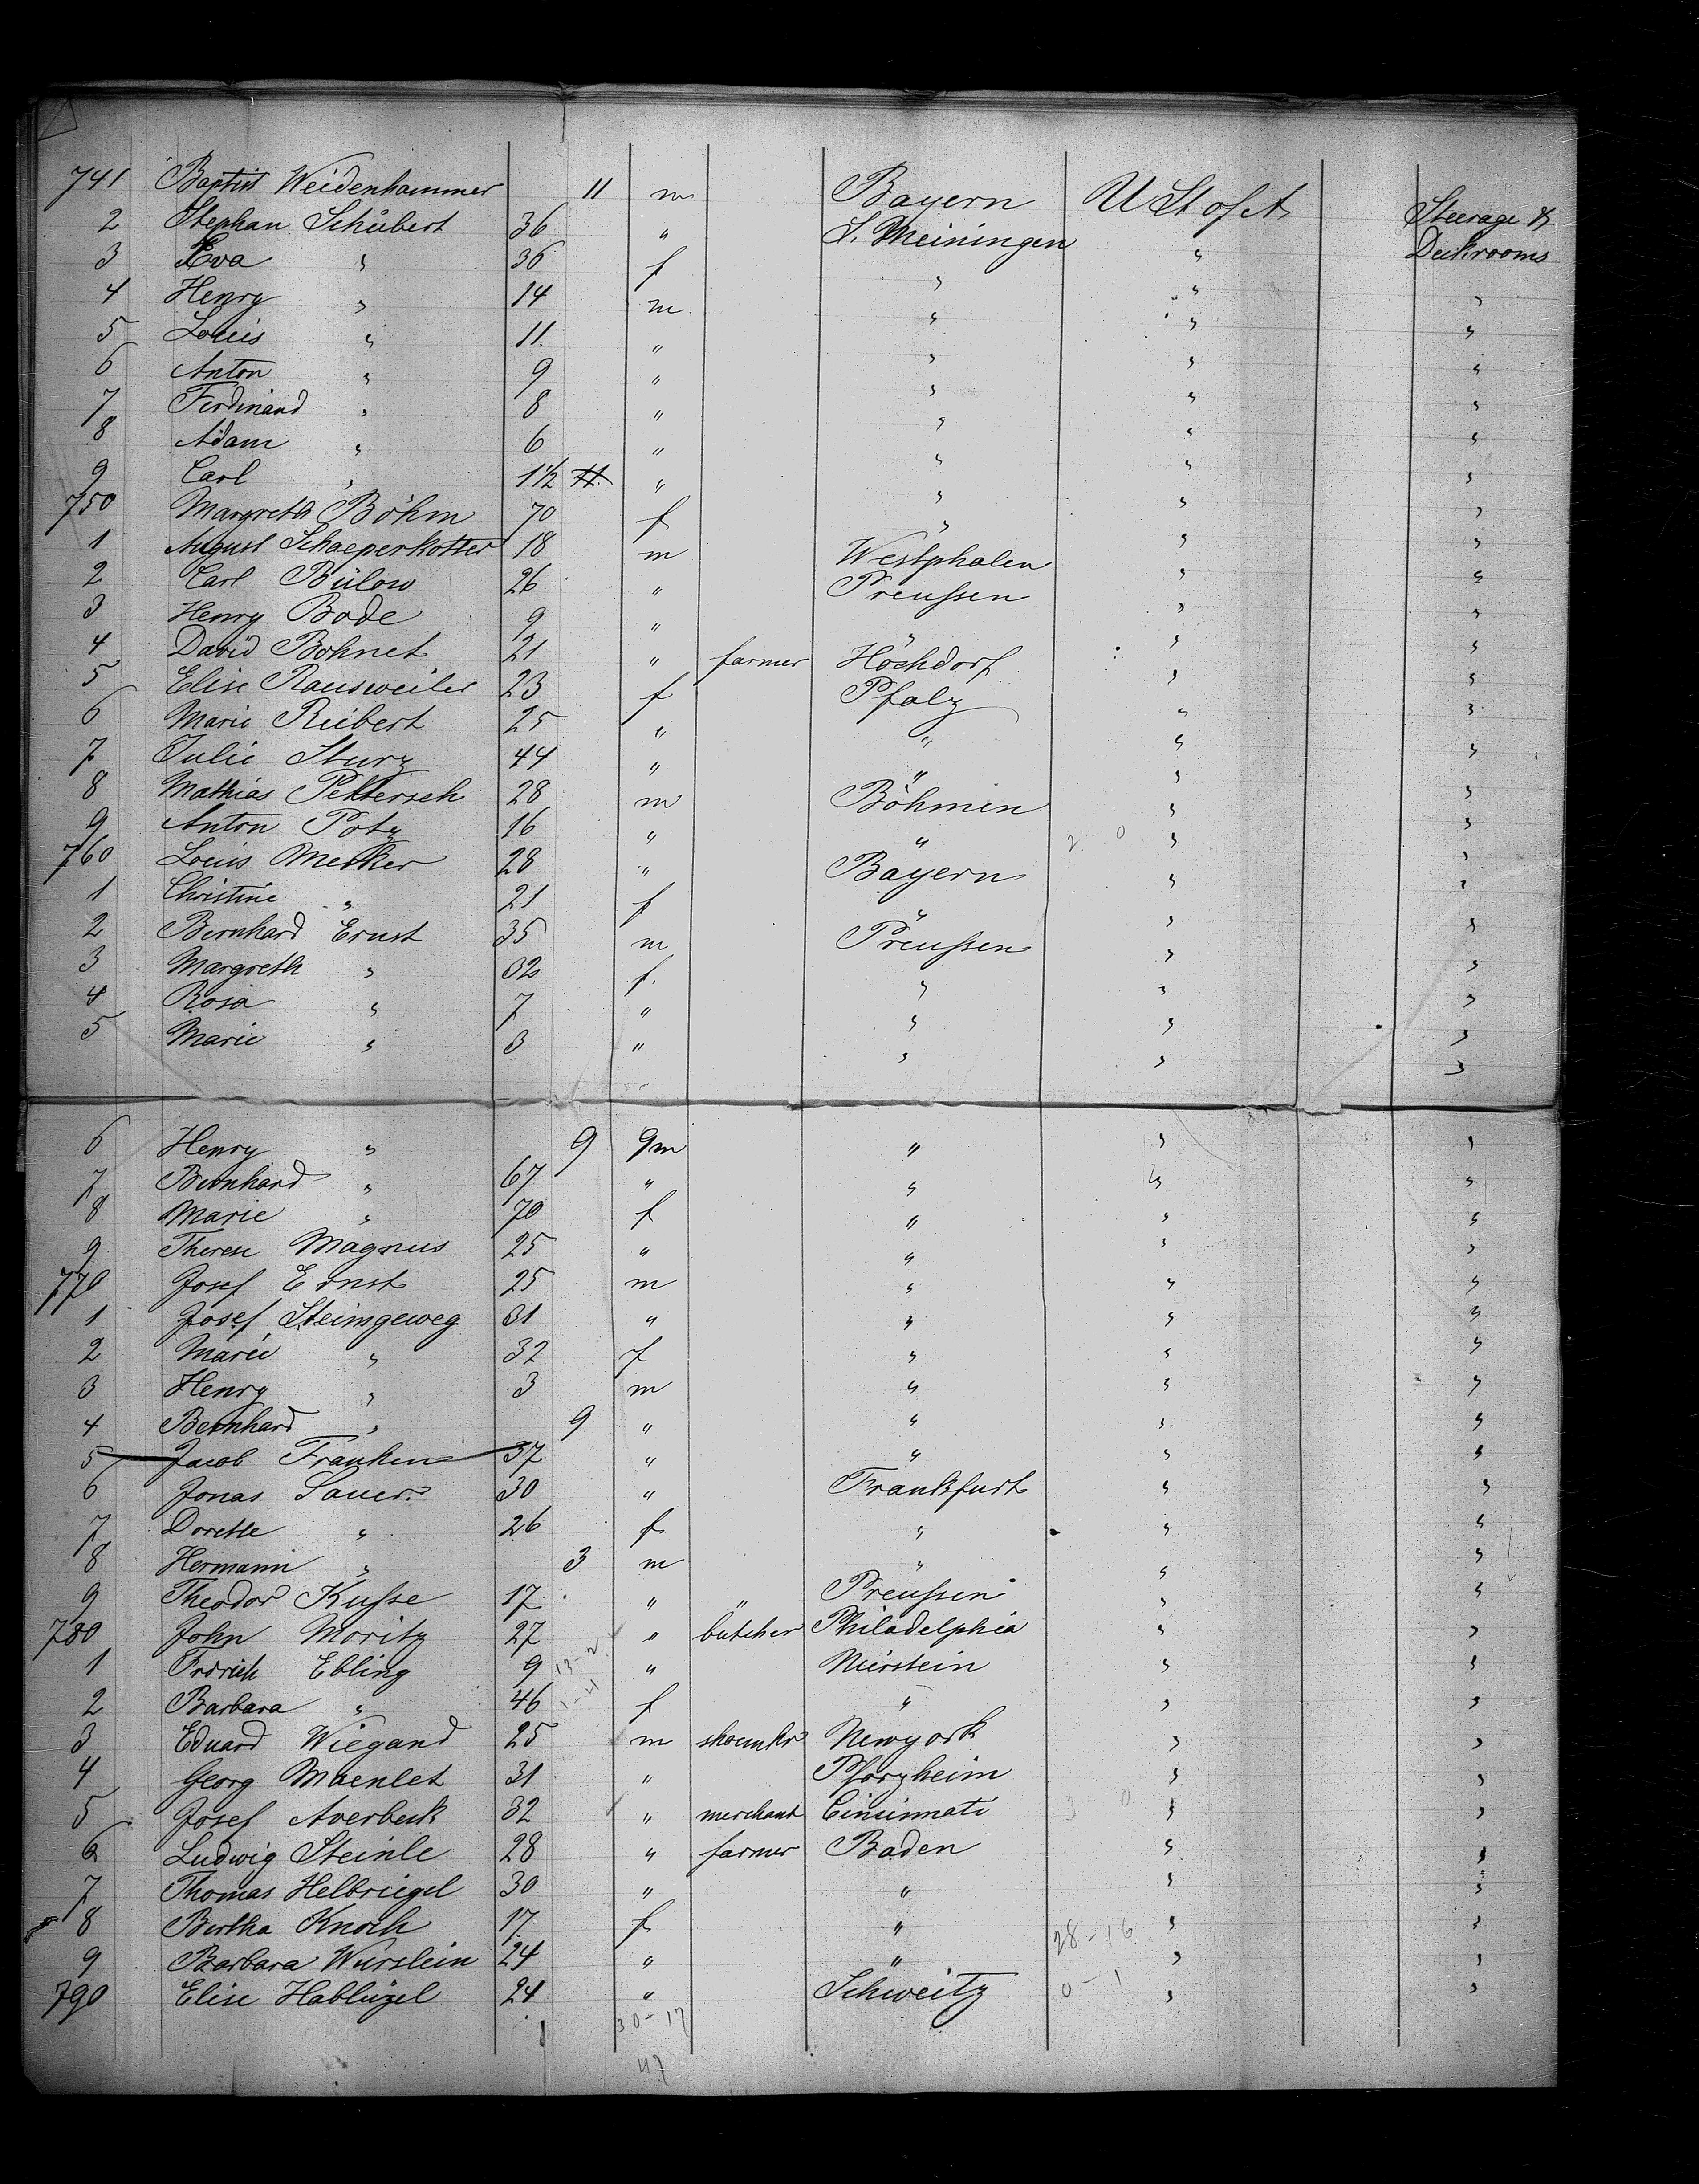 741 Baptist Weidenhammer 11 m Bayern U St of A Steerage &
2 Stephan Schübert 36 " S. Meiningen " Deckrooms
3 Eva " 36 f " " "
4 Henry " 14 m " " "
5 Louis " 11 " " " "
6 Anton " 9 " " " "
7 Ferdinand " 8 " " " "
8 Adam " 6 " " " "
9 Carl " 1½ " " " "
750 Margreth Böhm 70 f " " "
1 August Schaeperkotter 18 m Westphalen " "
2 Carl Bülow 26 " Preußen " "
3 Henry Bode 9 " " "
4 David Bohnet 21 " farmer Höchdorf " "
5 Elise Rausweiler 23 f Pfalz " "
6 Marie Reibert 25 " " " "
7 Julie Sturz 44 " " " "
8 Mathias Pettersch 28 m Böhmen " "
9 Anton Potz 16 " " 2 0 " "
760 Louis Merker 28 " Bayern " "
1 Christine " 21 f " " "
2 Bernhard Ernst 35 m Preußen " "
3 Margreth " 32 f. " " "
4 Rosa " 7 " " " "
5 Marie " 3 " " " "
6 Henry " 9 9m " " "
7 Bernhard " 67 " " " "
8 Marie " 70 f " " "
9 Therese Magnus 25 " " " "
770 Josef Ernst 25 m " " "
1 Josef Steimgeweg 31 " " " "
2 Marie " 32 f " " "
3 Henry " 3 m " " "
4 Bernhard " 9 " " " "
5 Jacob Franken 37 " " " "
6 Jonas Sauer 30 " Frankfurt " "
7 Dorette " 26 f " " "
8 Hermann " 3 m " " "
9 Theodor Kuße 17 " " Preußen " "
780 John Moritz 27 " butcher Philadelphia " "
1 Frdrich Ebling 9 13-2 " Nierstein " "
2 Barbara " 46 1-4 f " " "
3 Eduard Wiegand 25 m shoemkr Newyork " "
4 Georg Maenlet 31 " Pforzheim " "
5 Josef Averbeck 32 " merchant Cincinnati 3 0 " "
6 Ludwig Steinle 28 " farmer Baden " "
7 Thomas Helbriegel 30 " " " "
8 Bertha Knoch 17 f " 28-16 " "
9 Barbara Wurslein 24 " " " "
790 Elise Hablützel 24 " Schweitz 0-1 " "
30-17
47